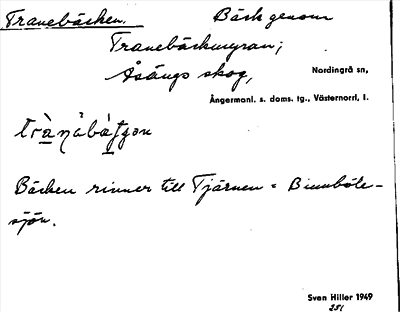 Tranebäcken. Bäck genom
Tranebäckmyran;
Åsängs skog, Nordingrå sn,
Ångermanl. s. doms. tg., Västernorrl. l.
Bäcken rinner till Tjärnen = Binnböle-
sjön.
Sven Hiller 1949
251